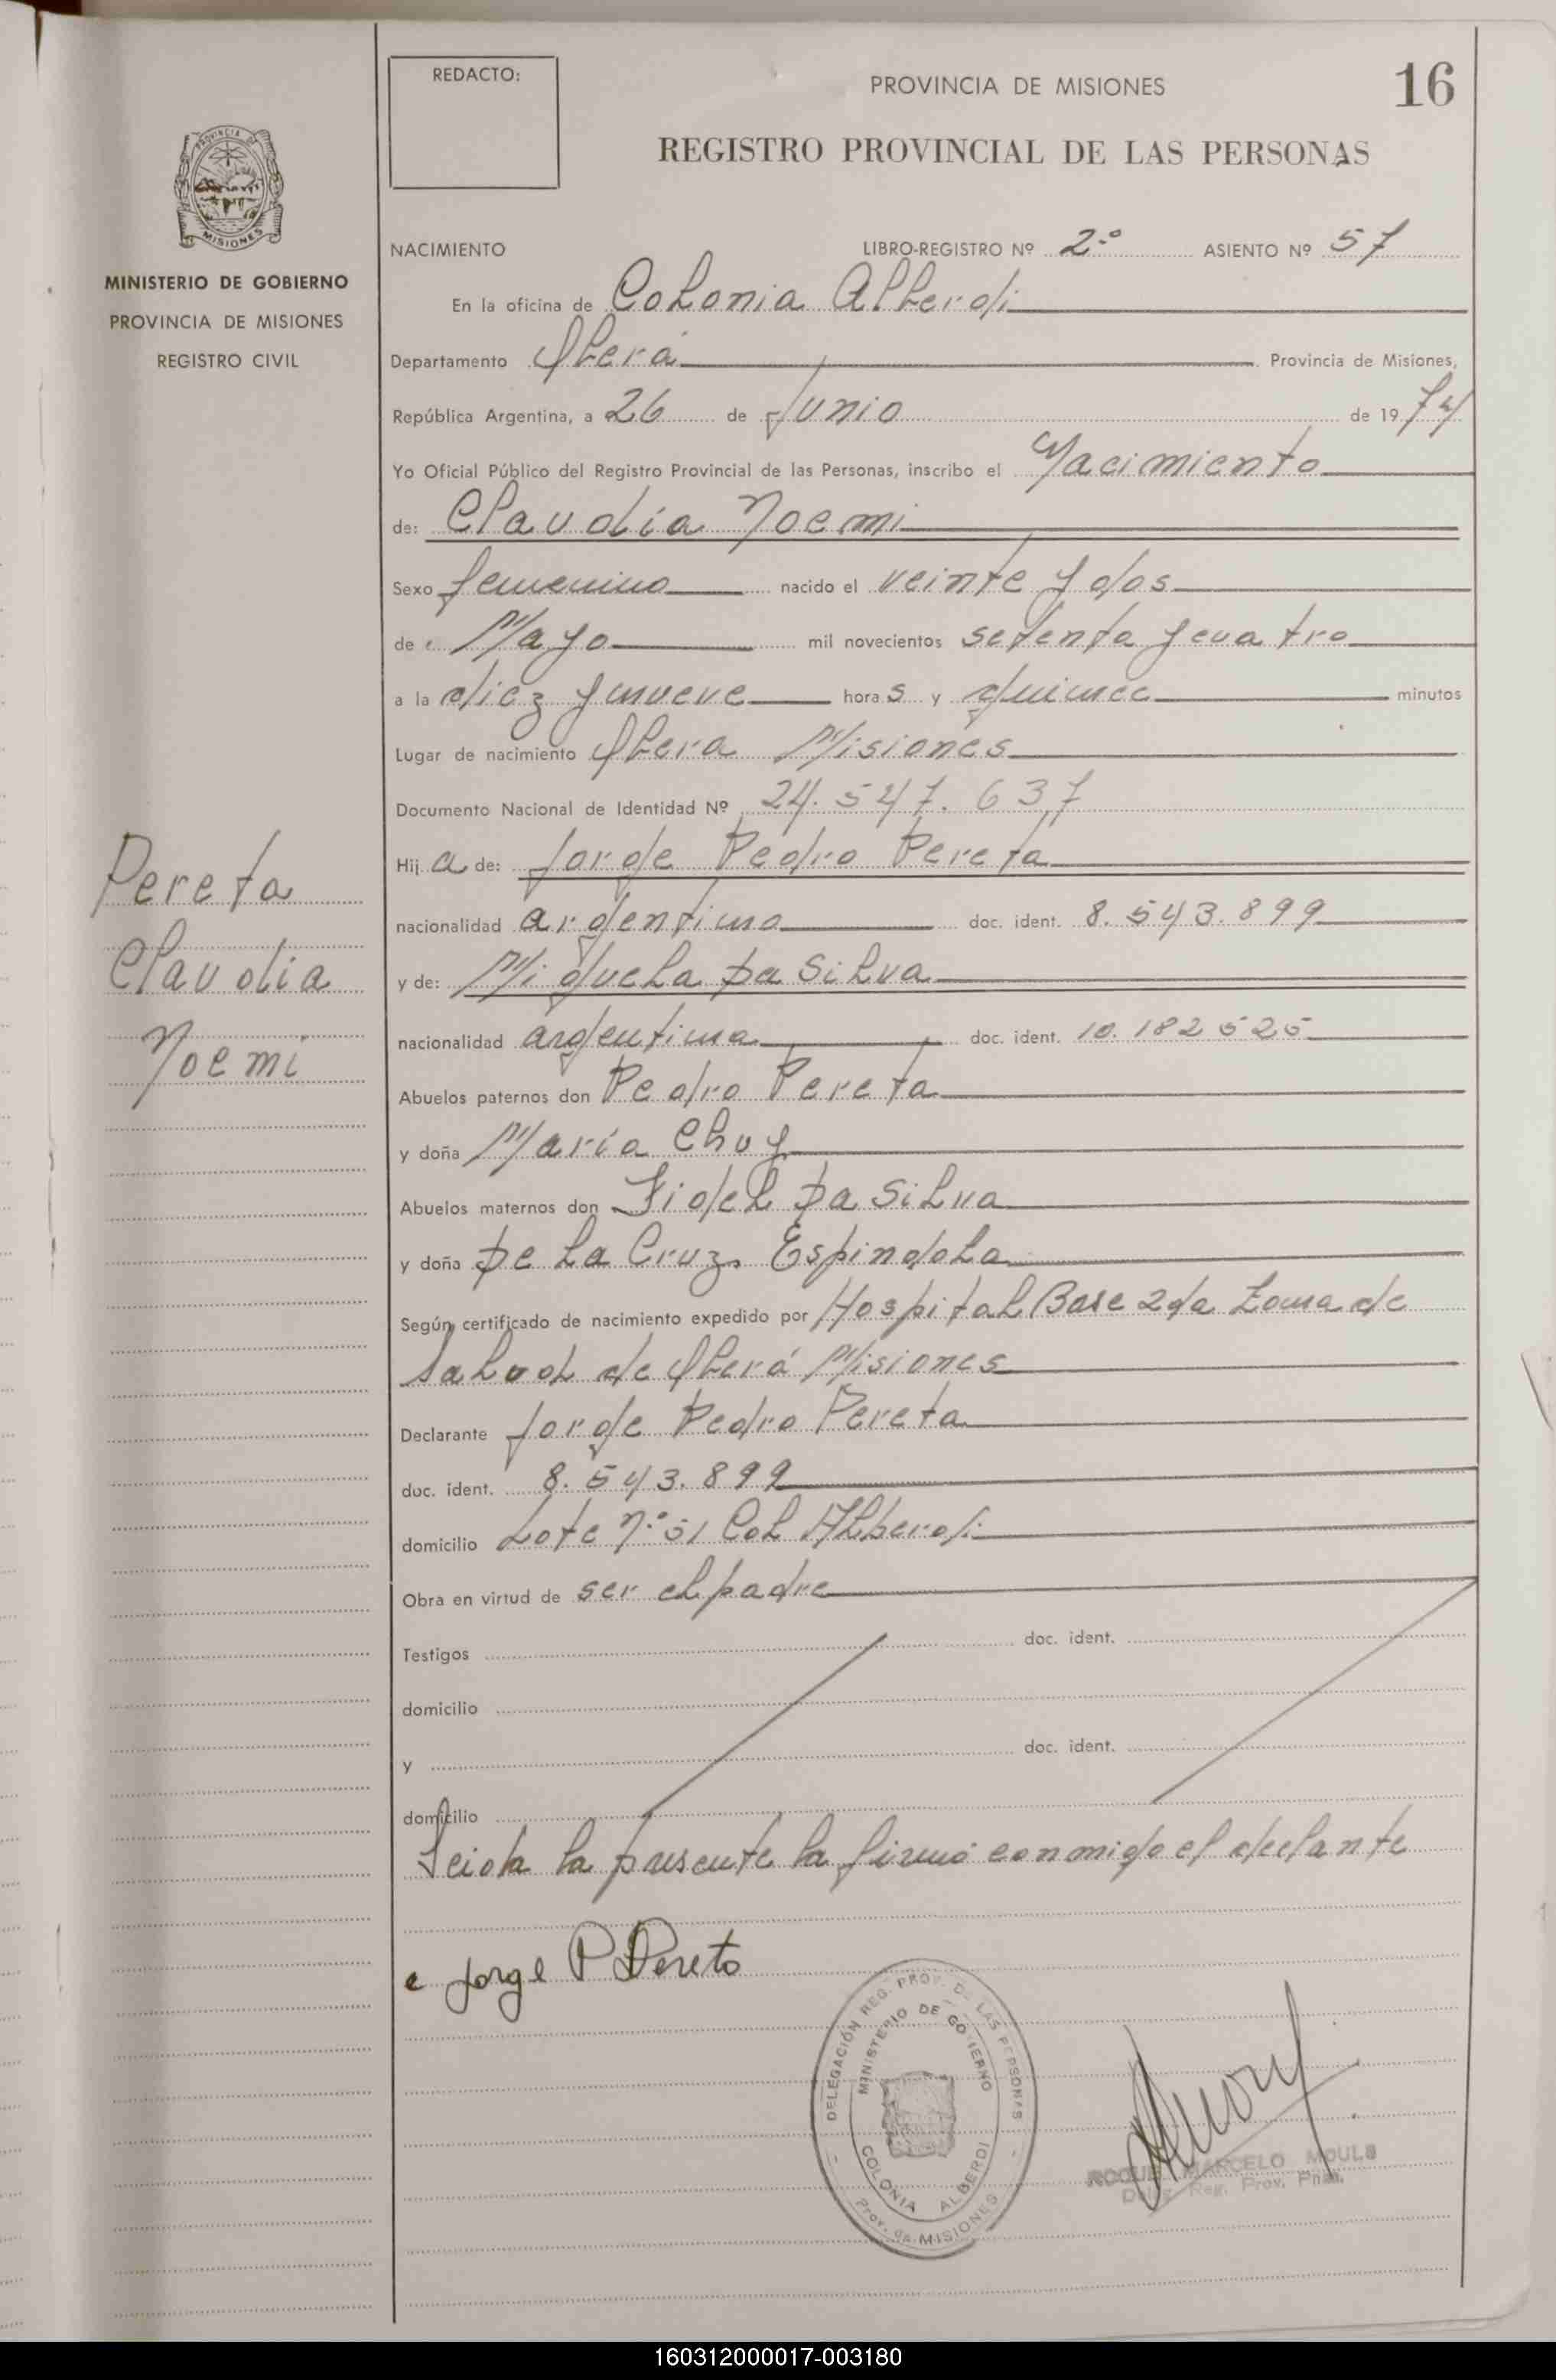 REDACTO:
PROVINCIA DE MISIONES
16
REGISTRO PROVINCIAL DE LAS PERSONAS
PROVINCIA DE
MISIONES
MINISTERIO DE GOBIERNO
PROVINCIA DE MISIONES
REGISTRO CIVIL
NACIMIENTO LIBRO-REGISTRO Nº 2º ASIENTO Nº 57
En la oficina de Colonia Alberdi
Departamento Oberá Provincia de Misiones,
República Argentina, a 26 de Junio de 1974
Yo Oficial Público del Registro Provincial de las Personas, inscribo el Nacimiento
de: Claudia Noemi
Sexo femenino nacido el veinte y dos
de Mayo mil novecientos setenta y cuatro
a la diez y nueve horas y quince minutos
Lugar de nacimiento Obera Misiones
Documento Nacional de Identidad Nº 24.547.637
Hija de: Jorge Pedro Pereta
nacionalidad argentino doc. ident. 8.543.899
y de: Miguela Da Silva
nacionalidad argentina doc. ident. 10.182525
Abuelos paternos don Pedro Pereta
y doña María Chuy
Abuelos maternos don Fidel Da Silva
y doña De La Cruz Espindola
Según certificado de nacimiento expedido por Hospital Base 2da Zona de
Salud de Oberá Misiones
Declarante Jorge Pedro Pereta
doc. ident. 8.543.899
domicilio Lote Nº 51 Col Alberdi
Obra en virtud de ser el padre
Testigos doc. ident.
domicilio
y doc. ident.
domicilio
Leida la presente la firmó conmigo el declante
Jorge P Pereto
Pereta
Claudia
Noemi
DELEGACIÓN REG. PROV. DE LAS PERSONAS
MINISTERIO DE GOBIERNO
COLONIA ALBERDI
Prov. de MISIONES
ROQUE MARCELO MOULS
Deleg. Reg. Prov. Pnas.
160312000017-003180